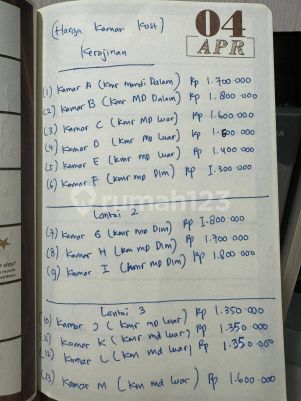 (Harga Kamar Kost)
Kerajinan
04
APR
(1) Kamar A (kmr mandi Dalam) Rp 1.700.000
(2) Kamar B (kmr MD Dalam) Rp 1.800.000
(3) Kamar C (kmr mo luar) Rp 1.600.000
(4) Kamar D (kmr mo luar) Rp 1.600.000
(5) Kamar E (kmr mo luar) Rp 1.400.000
(6) Kamar F (kmr mo Dlm) Rp 1.300.000
rumah123
Lantai 2
(7) Kamar G (kmr mo Dlm) Rp 1.800.000
(8) Kamar H (km mo Dlm) Rp 1.700.000
(9) Kamar I (kmr mo Dlm) Rp 1.800.000
Lantai 3
(10) Kamar J (kmr mo luar) Rp 1.350.000
(11) Kamar K (kmr md luar) Rp 1.350.000
(12) Kamar L (km md luar) Rp 1.350.000
(13) Kamar M (km md luar) Rp 1.600.000